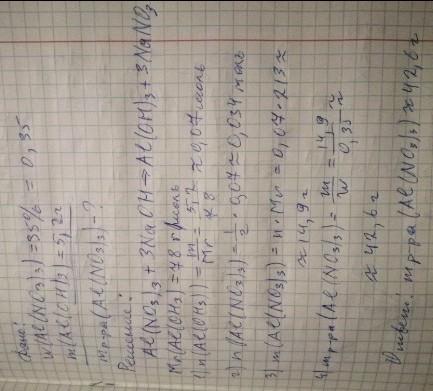 Дано:
w(Al(NO3)3) = 35% = 0,35
m(Al(OH)3) = 5,2г
mр-ра(Al(NO3)3) - ?
Решение:
Al(NO3)3 + 3NaOH → Al(OH)3 + 3NaNO3
Mr(Al(OH)3 = 78 г/моль
1) n(Al(OH)3) = m/Mr = 5,2/78 ≈ 0,07 моль
2) n(Al(NO3)3) = 1/2 · 0,07 ≈ 0,034 моль
3) m(Al(NO3)3) = n · Mr = 0,07 · 213 ≈
≈ 14,9 г
4) mр-ра(Al(NO3)3) = m/w = 14,9/0,35 ≈
≈ 42,6 г
Ответ: mр-ра(Al(NO3)3) ≈ 42,6 г